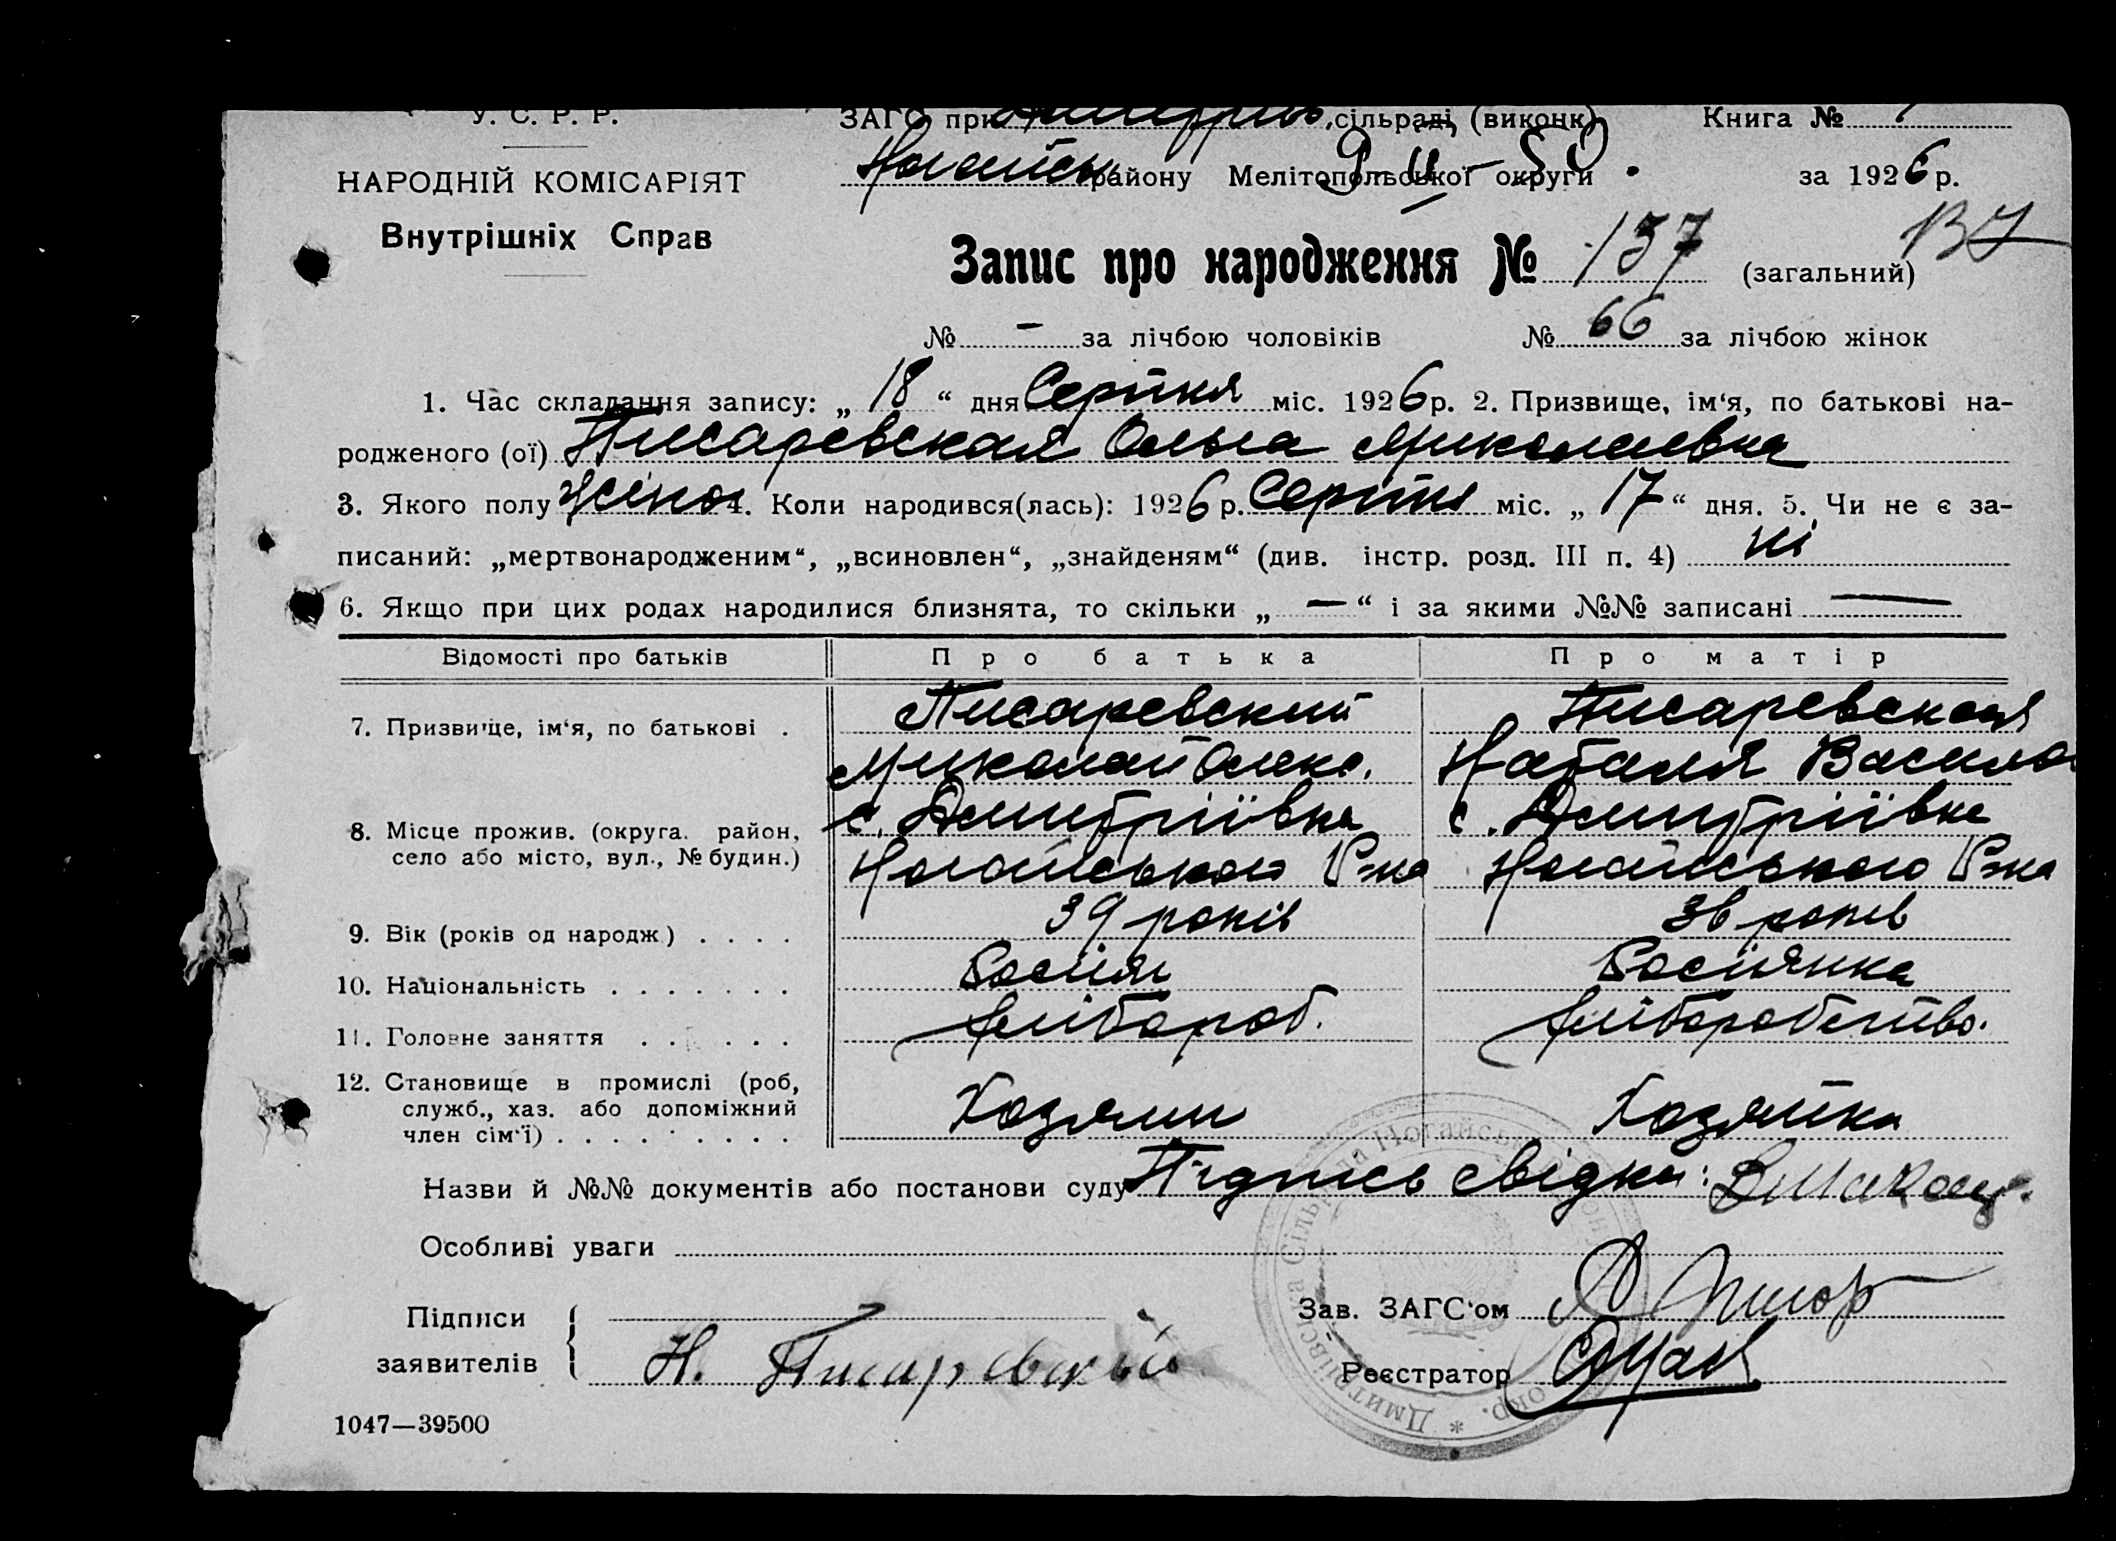 У. С. Р. Р.
НАРОДНІЙ КОМІСАРІЯТ
Внутрішніх Справ
ЗАГС при сільраді (виконк) Книга №
Ногайськ району Мелітопольської округи за 1926 р.
Запис про народження № 137 (загальний) 137
№ — за лічбою чоловіків № 66 за лічбою жінок
1. Час складання запису: „ 18 “ дня Серпня міс. 1926 р. 2. Призвище, ім‘я, по батькові на-
родженого (ої) Писаревская Ольга Миколаевна
3. Якого полу жіноч 4. Коли народився(лась): 1926 р. Серпня міс. „ 17 “ дня. 5. Чи не є за-
писаний: „мертвонародженим“, „всиновлен“, „знайденям“ (див. інстр. розд. III п. 4) ні
6. Якщо при цих родах народилися близнята, то скільки „ — “ і за якими №№ записані —
Відомості про батьків Про батька Про матір
7. Призвище, ім‘я, по батькові . Писаревский Писаревская
Миколай Олекс. Наталя Василь
8. Місце прожив. (округа. район, с. Дмитріївка с. Дмитріївка
село або місто, вул., № будин.) Ногайського Р-на Ногайського Р-на
9. Вік (років од народж) . . . . 39 років 36 років
10. Національність . . . . . . . Росіян Росіянка
11. Головне заняття . . . . . . хлібороб. хліборобство.
12. Становище в промислі (роб,
служб., хаз. або допоміжний
член сім‘ї) . . . . . . . . . . Хозяин Хозяйка
Назви й №№ документів або постанови суду Підпись свідка:
Особливі уваги
Підписи
заявителів
Н. Писаревский
Зав. ЗАГС‘ом
Реєстратор
1047—39500